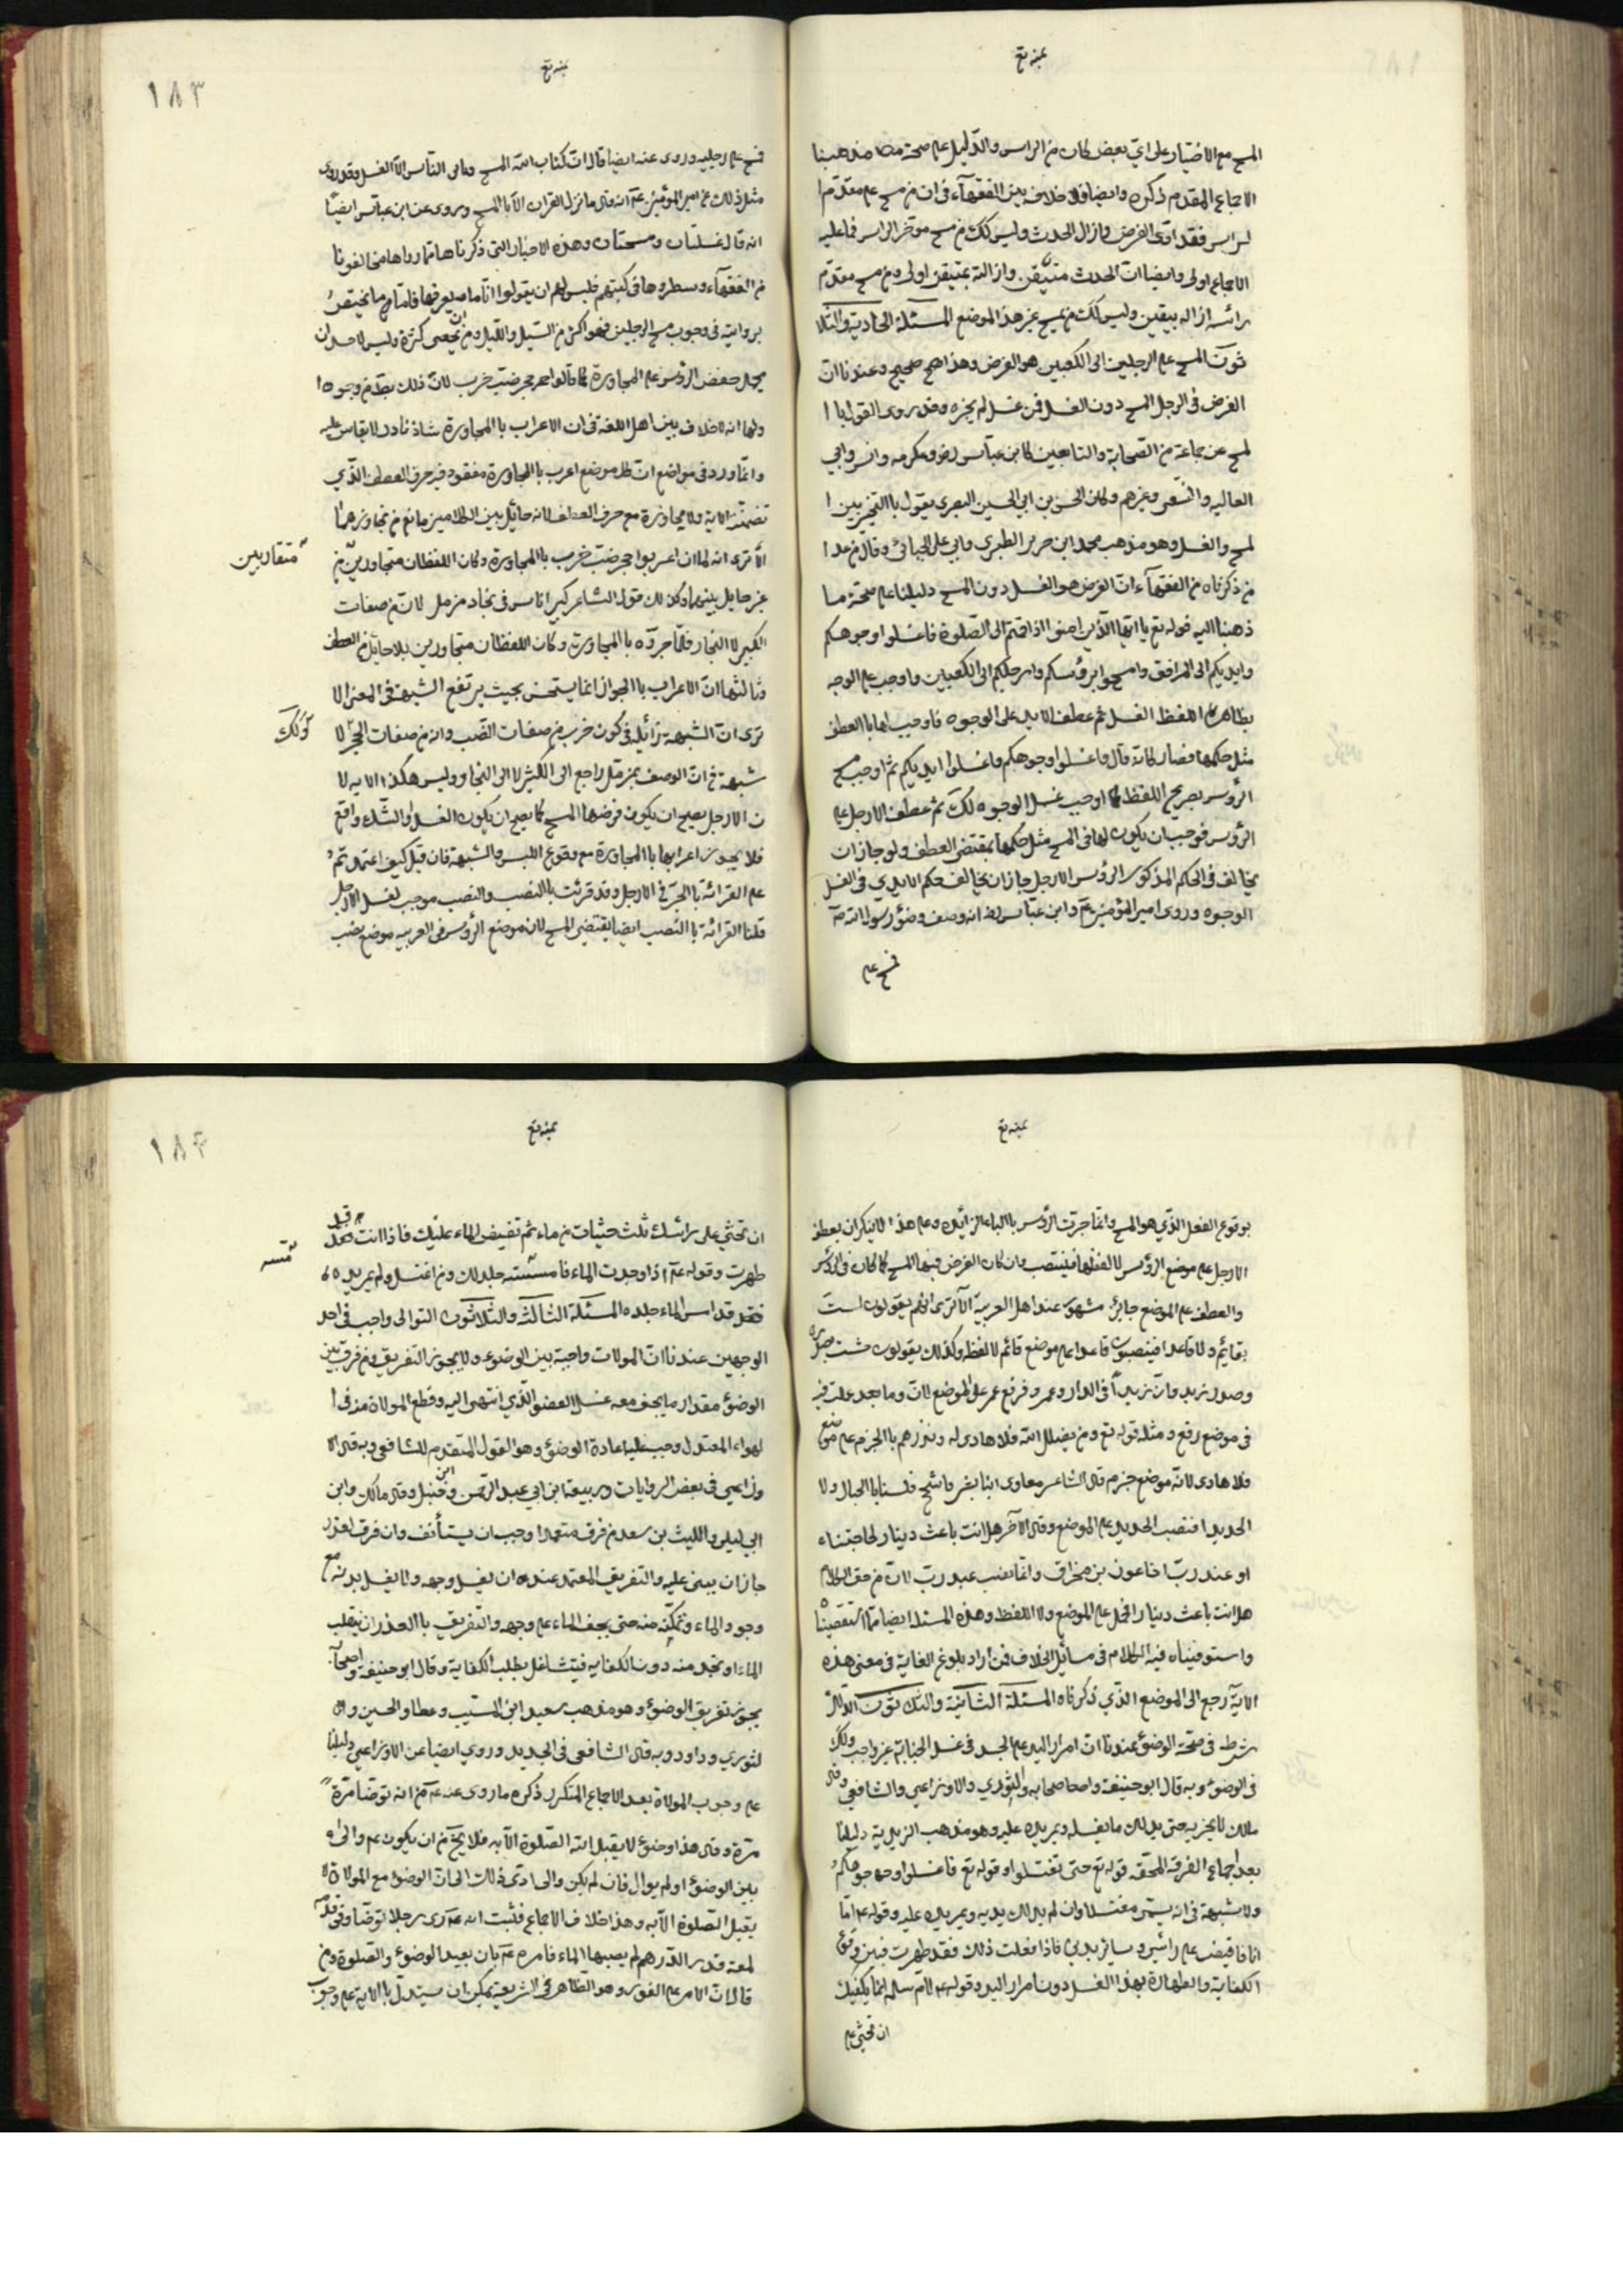 المسح مع الاختيار على اي بعض كان من الراس والدليل على صحة مذهبنا
الاجماع المقدم ذكره وايضا فلا خلاف بين الفقهآء في ان من مسح على مقدم ا
لراس فقد ادى الفرض وازال الحدث وليس كك من مسح موخر الراس فما عليه
الاجماع اولى وايضا ان الحدث متيقن وازالته بمتيقن اولى ومن مسح مقدم
رائسه ازاله بيقين وليس كك من مسح غير هذا الموضع المسئلة الحادية والثلا
ثون المسح على الرجلين الى الكعبين هو الفرض وهذا صحيح وعندنا ان
الفرض في الرجل المسح دون الغسل فمن غسل لم يجزه وقد روى القول با ا
لمسح عن جماعة من الصحابة والتابعين كابن عباس رض وعكرمه وانس وابي
العاليه والشعبي وغيرهم وكان الحسن بن ابي الحسين البصري يقول با التخيير بين ا
لمسح والغسل وهو مذهب محمد ابن جرير الطبري وابي على الجبائي وقال من عدا
من ذكرناه من الفقهآء ان الفرض هو الغسل دون المسح دليلنا على صحة ما
ذهبنا اليه قوله تع يا ايها الذين امنوا اذا قمتم الى الصلوة فاغسلوا وجوهكم
وايديكم الى المرافق وامسحوا برؤسكم وارجلكم الى الكعبين فاوجب على الوجه
بظاهر اللفظ الغسل ثم عطف الايدي على الوجوه فاوجب لها با العطف
مثل حكمها فصار كانه قال واغسلوا وجوهكم واغسلوا ايديكم ثم اوجب مسح
الرؤس بصريح اللفظ كما اوجب غسل الوجوه كك ثم عطف الارجل على
الرؤس فوجب ان يكون لها في المسح مثل حكمها بمقتضى العطف ولو جاز ان
يخالف في الحكم المذكور الرؤس الارجل جاز ان يخالف حكم الايدي في الغسل
الوجوه وروى امير المؤمنين ع وابن عباس رض انه وصف وضؤ رسول الله ص
فمسح على
١٨٣
فمسح على رجليه وروى عنه ايضا قال ان كتاب الله المسح ويابى الناس الا الغسل وقد روى
مثل ذلك عن امير المؤمنين ع انه قال ما نزل القران الا با المسح وروى عن ابن عباس ايضا
انه قال غسلتان ومسحتان وهذه الاخبار التي ذكرناها مما رواها مخالفونا
من الفقهآء وسطروها في كتبهم فليس لهم ان يقولوا اننا ما نعرفها فاما ما نختص
بروايته في وجوب مسح الرجلين فهو اكثر من السيل والليل ومن ان يحصى كثرة وليس لاحد ان
يحمل خفض الرؤس على المجاورة كما قالوا جحر ضب خرب لان ذلك بط من وجوه ا
ولها انه لا خلاف بين اهل اللغة في ان الاعراب با المجاورة شاذ نادر لا يقاس عليه
وانما ورد في مواضع ان كل موضع اعرب با المجاورة مفقود فيه حرف العطف الذي
تضمنه الاية ولا مجاورة مع حرف العطف لانه حائل بين الكلامين مانع من تجاورهما
الا ترى انه لما ان اعربوا جحر ضب خرب با المجاورة وكان اللفظان متجاورين من
متقاربين
غير حايل بينهما وكذلك قول الشاعر كبير اناس في بجاد مزمل لان من صفات
الكبير لا البجاد فلما جروه با المجاورة وكان اللفظان متجاورين بلا حايل من العطف
وثالثها ان الاعراب با الجوار انما يستحسن بحيث يرتفع الشبهة في المعنى الا
ترى ان الشبهة زائله في كون خرب من صفات الضب وانه من صفات الجحر لا
وكك
شبهة في ان الوصف بمزمل راجع الى الكبير لا الى البجاد وليس هكذا الايه لا
ن الارجل يصح ان يكون فرضها المسح كما يصح ان يكون الغسل والشك واقع
فلا يجوز اعرابها با المجاورة مع وقوع اللبس والشبهة فان قيل كيف اعتمدتم
على القرائة با الجر في الارجل وقد قرئت با النصب والنصب موجب لغسل الارجل
قلنا القرائة با النصب ايضا يقتضى المسح لان موضع الرؤس في العربيه موضع نصب
بوقوع الفعل الذي هو المسح وانما جرت الرؤس با الباء الزائده وعلى هذا لا ينكر ان يعطف
الارجل على موضع الرؤس لا لفظها فينتصب وان كان الفرض فيها المسح كما كان في الرؤس
والعطف على الموضع جايز مشهور عند اهل العربية الا ترى انهم يقولون لست
بقائم ولا قاعدا فينصبون قاعدا على موضع قائم لا لفظه وكذلك يقولون خشنت بصدره
وصدر زيد وان زيداً في الدار وعمرو فرفع عمر على الموضع لان وما بعد علت فيه
في موضع رفع ومثله قوله تع ومن يضلل الله فلا هادى له ونذرهم با الجزم على موضع
فلا هادى لانه موضع جزم قال الشاعر معاوى اننا بشر فاسجح فلسنا با الجبال ولا
الحديدا فنصب الحديد على الموضع وقال الآخر هل انت باعث دينار لحاجتنا
او عبد رب اخا عون بن مخراق وانما نصب عبد رب لان من حق الكلام
هل انت باعث دينار الحمل على الموضع ولا اللفظ وهذه المسئلة ايضا مما استقصينا
واستوفيناه فيه الكلام في مسائل الخلاف فمن اراد بلوغ الغاية في معنى هذه
الاية رجع الى الموضع الذي ذكرناه المسئلة الثانية والثلثون الدلك
شرط في صحة الوضؤ عندنا ان امرار اليد على الجسد في غسل الجنابة غير واجب وكك
في الوضؤ وبه قال ابو حنيفة واصحابه والثوري والاوزاعي والشافعي وقال
مالك لا يجزيه حتى يدلك ما يغسله ويمر يده عليه وهو مذهب الزيدية دليلنا
بعد اجماع الفرقة المحقة قوله تع حتى تغتسلوا وقوله تع فاغسلوا وجوهكم
ولا شبهة في انه يسمى مغتسلا وان لم يدلك يديه ويمر يده عليه وقوله ع اما
انا فافيض على رائسي وسائر بدني فاذا فعلت ذلك فقد طهرت فبين وقوع
الكفاية والطهارة بهذا الغسل دون امرار اليد وقوله ع لام سلمه انما يكفيك
ان تحثي على
١٨٤
ان تحثي على رائسك ثلث حثيات من ماء ثم تفيض الماء عليك فاذا انت قد
طهرت وقوله ع اذا وجدت الماء فامسسته جلدك ومن اغتسل ولم يمر يده
فقد قد امس الماء جلده المسئلة الثالثه والثلاثون التوالى واجب في احد
الوجهين عندنا ان الموالات واجبة بين الوضوء ولا يجوز التفريق ومن فرق بين
الوضؤ مقدار ما يجف معه غسل العضو الذي انتهى اليه وقطع الموالاة منه في ا
لهواء المعتدل وجب عليه اعادة الوضؤ وهو القول المتقدم للشافعي وبه قال الا
وزاعي في بعض الروايات وربيعة ابن ابي عبد الرحمن وابن حنبل وقال مالك وابن
ابي ليلى والليث بن سعد من فرق متعمدا وجب ان يستأنف وان فرق لعذر
جاز ان يبنى عليه والتفريق المعتمد عنده ان يغسل وجهه ولا يغسل يديه مع
وجود الماء وتمكنه منه حتى يجف الماء على وجهه والتفريق با العذر ان ينقلب
الماء او نجد منه دون الكفايه فيتشاغل بطلب الكفاية وقال ابو حنيفة واصحابه
يجوز تفريق الوضؤ وهو مذهب سعيد ابن المسيب وعطا والحسن وا
لثوري وداود وبه قال الشافعى في الجديد وروي ايضا عن الاوزاعي دليلنا
على وجوب الموالاة بعد الاجماع المتكرر ذكره ما روى عنه ع من انه توضا مرة
مرة وقال هذا وضؤ لا يقبل الله الصلوة الا به فلا يخ من ان يكون ع والى
بين الوضؤ او لم يوال فان لم يكن والى ادى ذلك الى ان الوضؤ مع الموالاة لا
يقبل الصلوة الا به وهذا خلاف الاجماع فثبت انه ع راى رجلا توضا وفي قدمه
لمعة قدر الدرهم لم يصبها الماء فامره ع بان يعيد الوضوء والصلوة ومن
قال ان الامر على الفور وهو الظاهر في الشريعة يمكن ان يستدل با الاية على وجوب